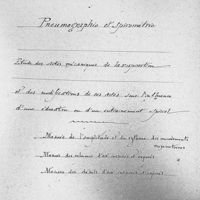 Pneumographie et Spirométrie
Etude des actes mécaniques de la respiration
et des modifications de ces actes sous l'influence
d'une éducation ou d'un entrainement spécial
Mesure de l'amplitude et du rythme des mouvements
respiratoires
Mesure des volumes d'air inspirés et expirés
Mesure des débits d'air inspirés et expirés